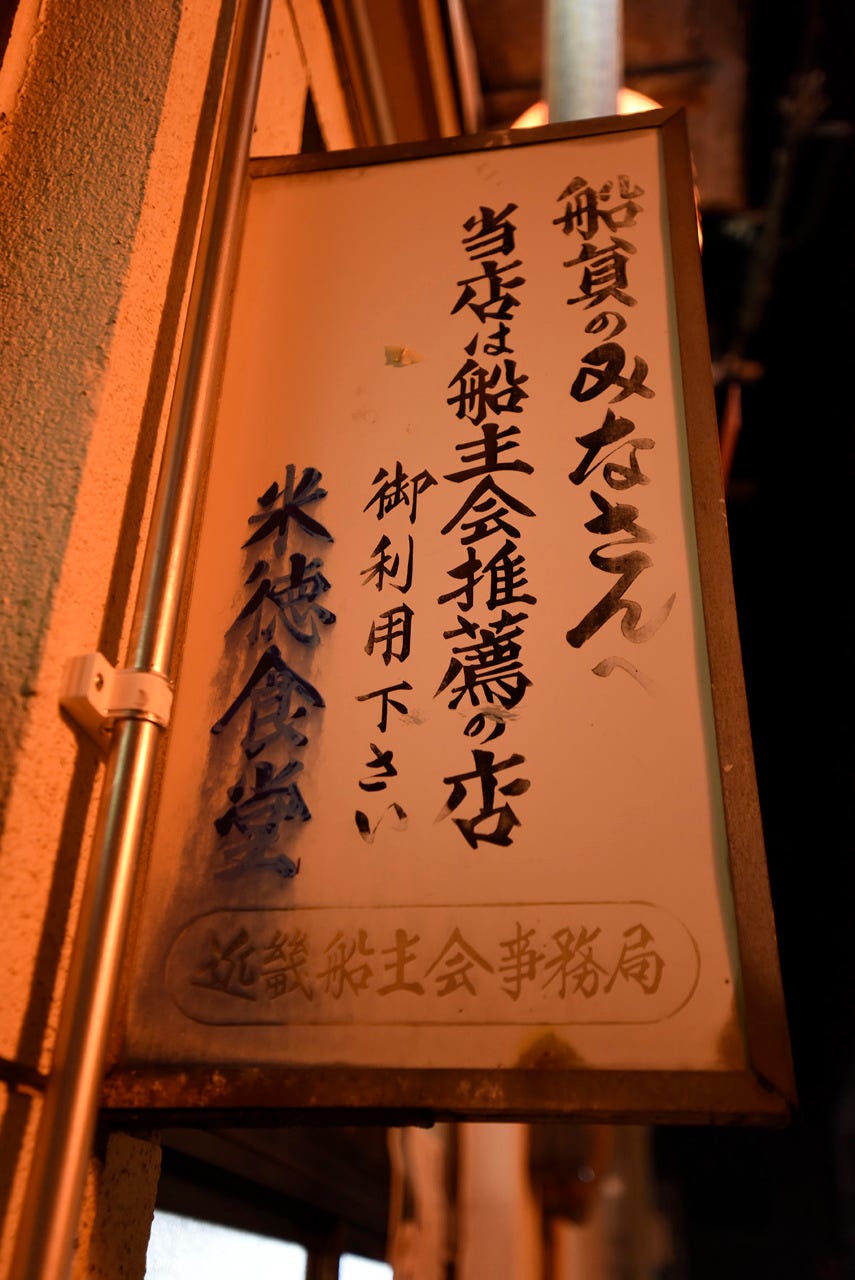 船員のみなさんへ
当店は船主会推薦の店
御利用下さい
米徳食堂
近畿船主会事務局